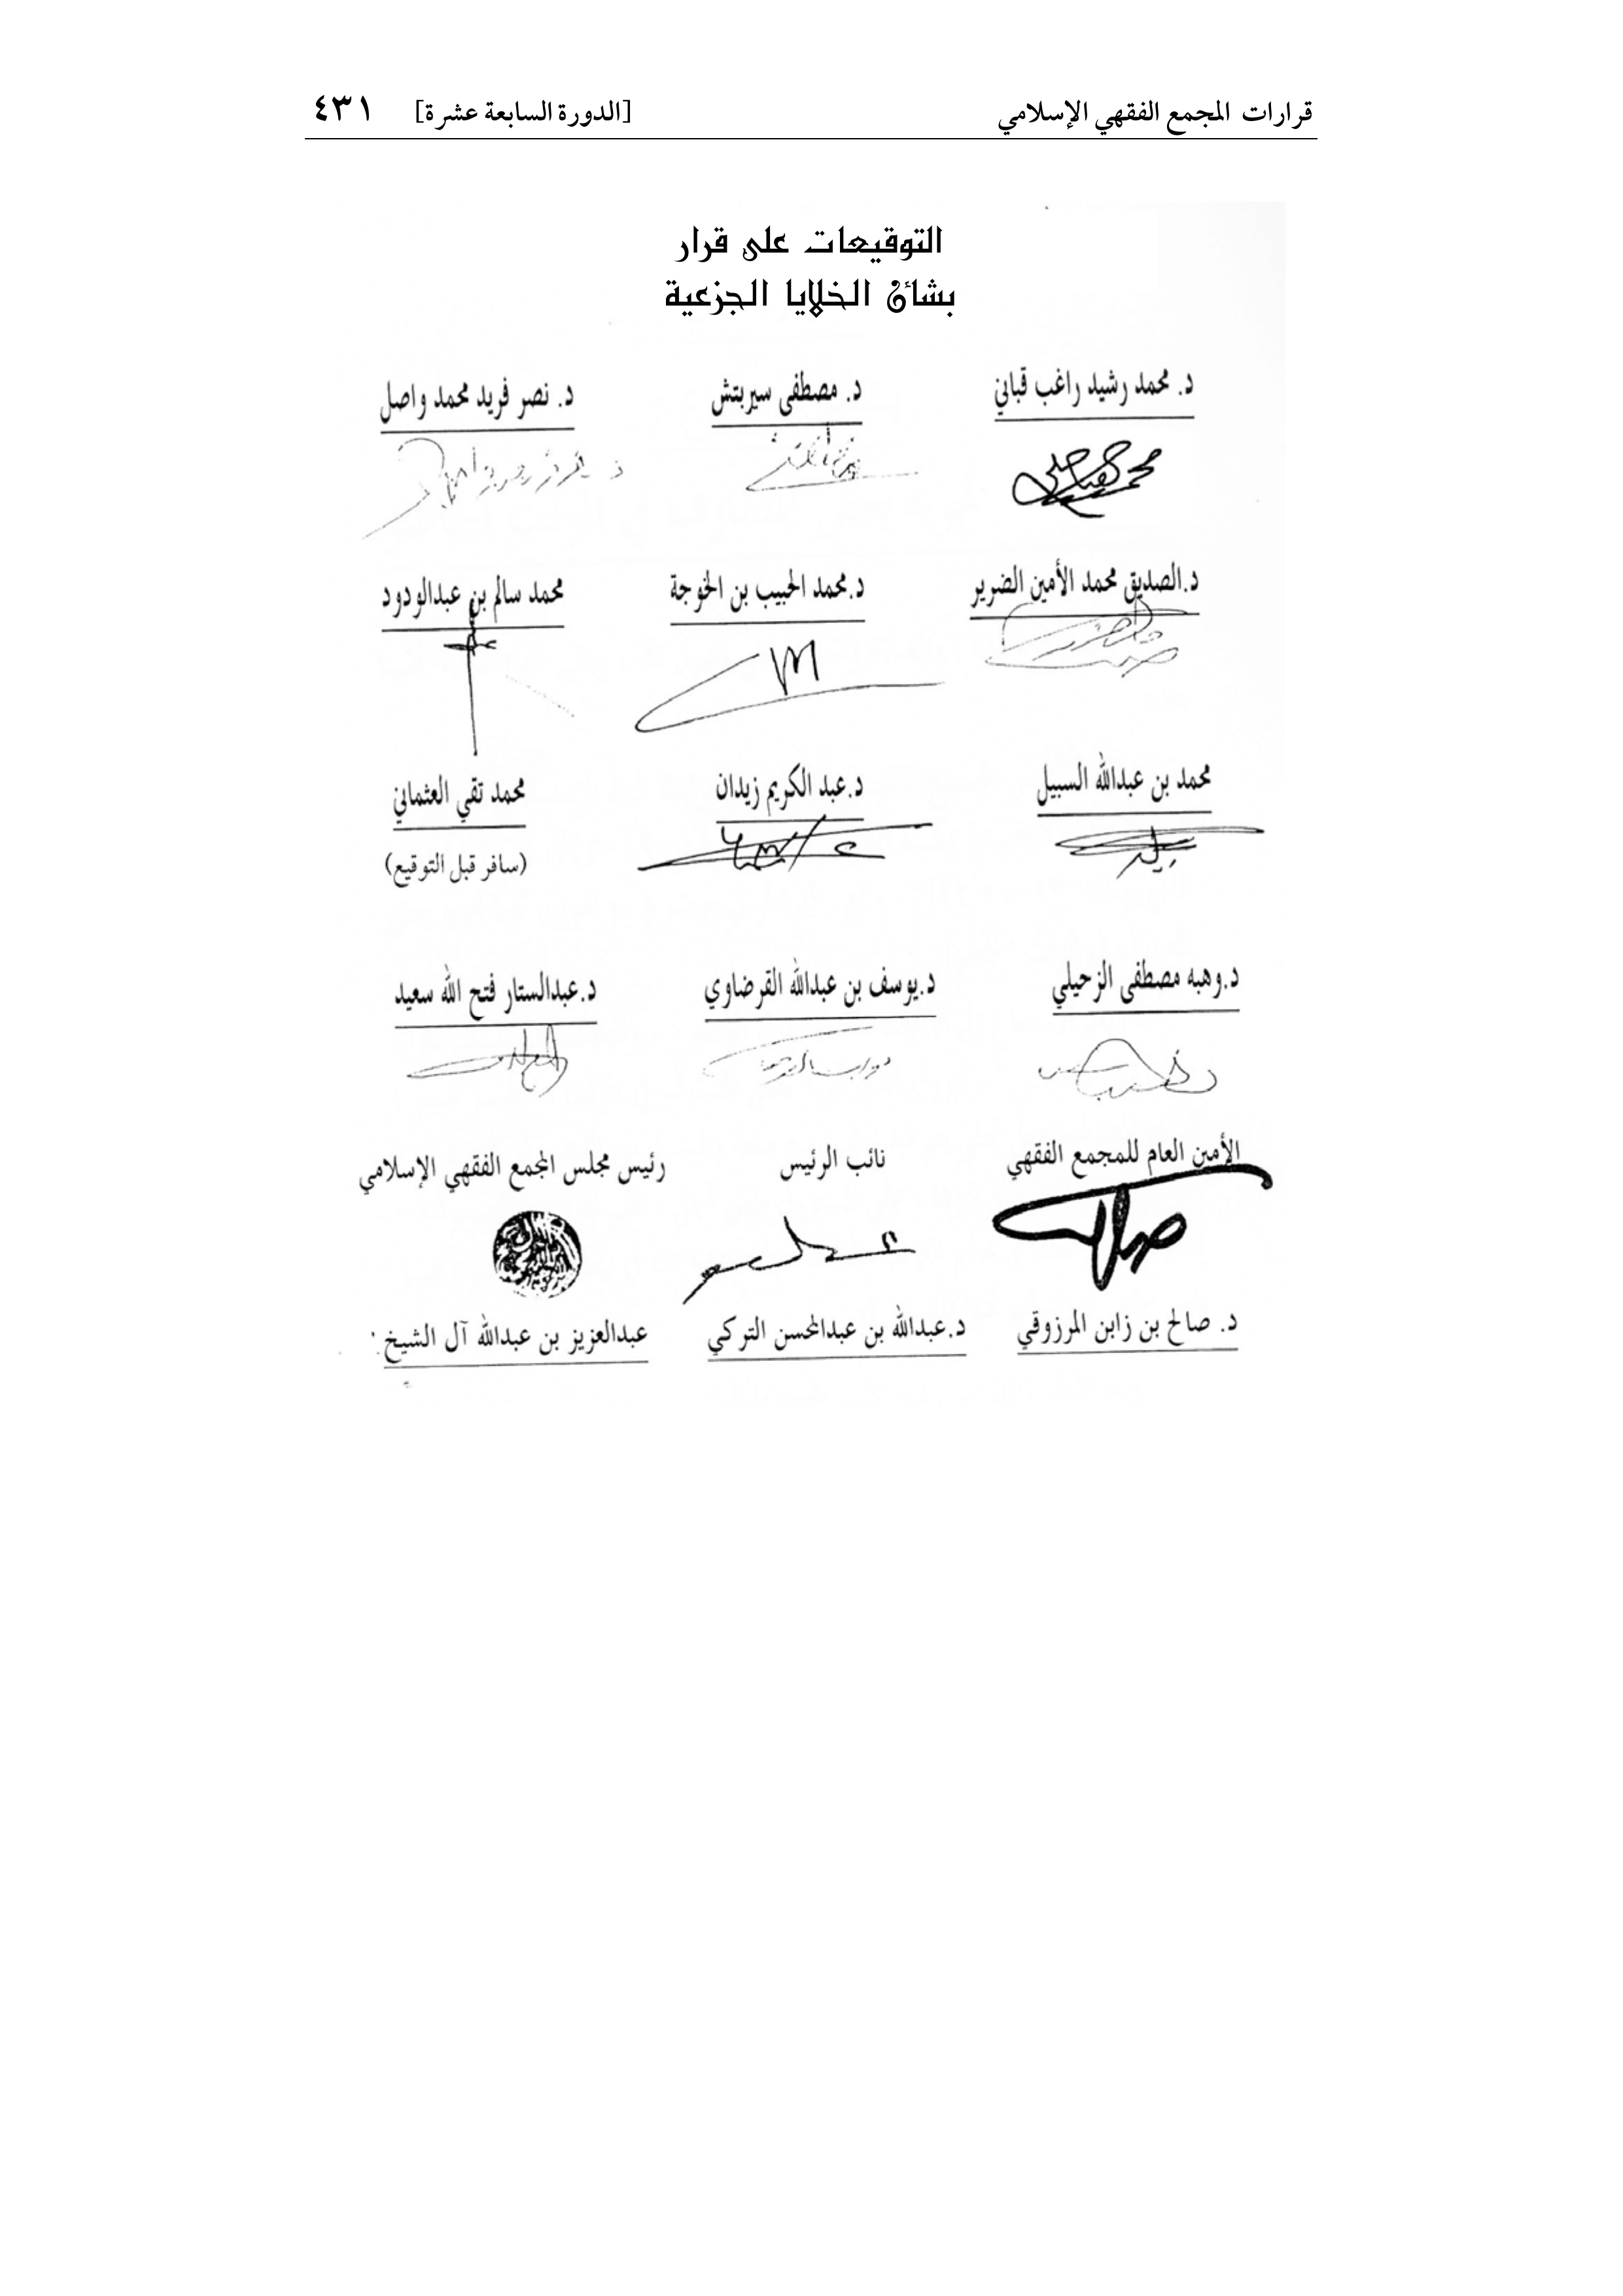 قرارات المجمع الفقهي الإسلامي [الدورة السابعة عشرة] ٤٣١
التوقيعات على قرار
بشأن الخلايا الجزعية
د. محمد رشيد راغب قباني د. مصطفى سيريتش د. نصر فريد محمد واصل
د.الصديق محمد الأمين الضرير د.محمد الحبيب بن الخوجة محمد سالم بن عبدالودود
محمد بن عبدالله السبيل د.عبد الكريم زيدان محمد تقي العثماني
(سافر قبل التوقيع)
د.وهبه مصطفى الزحيلي د.يوسف بن عبدالله القرضاوي د.عبدالستار فتح الله سعيد
الأمين العام للمجمع الفقهي نائب الرئيس رئيس مجلس المجمع الفقهي الإسلامي
د. صالح بن زابن المرزوقي د.عبدالله بن عبدالمحسن التركي عبدالعزيز بن عبدالله آل الشيخ